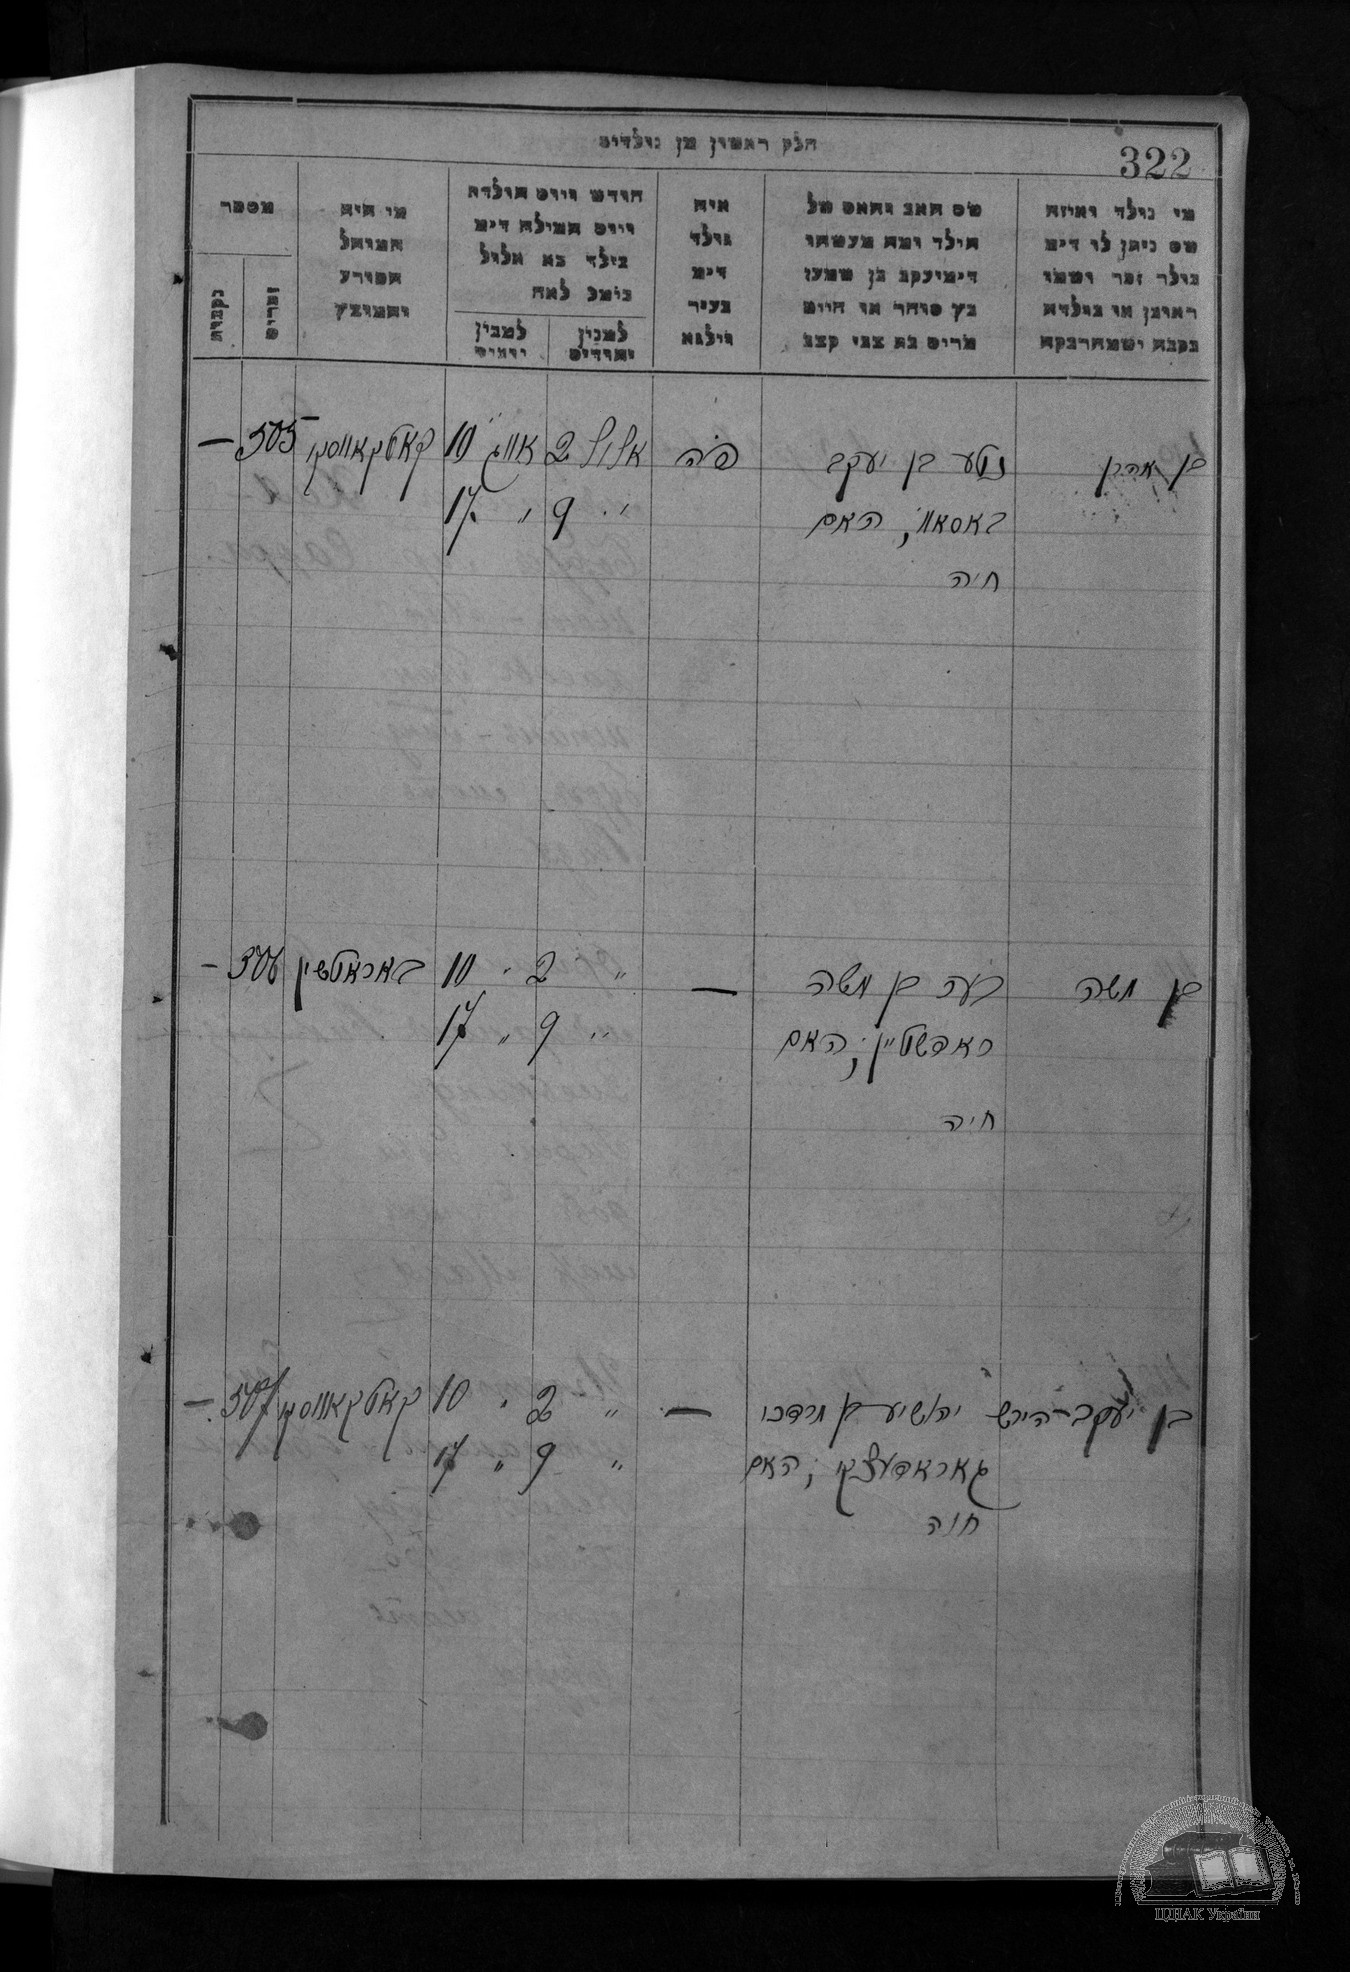 322
חלק ראשון מן נולדים
מי נולד ואיזה
שם ניתן לו דימ
נולד זכר ושמו
ראובן או נולדה
נקבה ושמה רבקה
שם האב והאם של
הילד ומה מעשהו
דימ יעקב בן שמעון
כץ סוחר או חיים
מרים בת צבי קצב
איה
נולד
דימ
בעיר
ווילנא
חודש ויום הולדת
ויום המילה דימ
נולד בא אלול
נימל לאח
למנין
יהודים
למנין
יונים
מי היה
המוהל
הפורע
והמוצץ
מספר
זכרים
נקבות
בן אהרן
נטע בן יעקב
באסאוו; האם
חיה
פֹה
אלול 2
" 9
אווג 10
" 17
קאטקאווסקי
505
—
בן משה
בן משה
; האם
חיה
—
" 2
" 9
" 10
" 17
506
—
בן יעקב-הירש
יהושיע בן מרדכי
גאראדעצקי; האם
חנה
—
" 2
" 9
" 10
" 17
קאטקאווסקי
507
—
ЦДІАК України